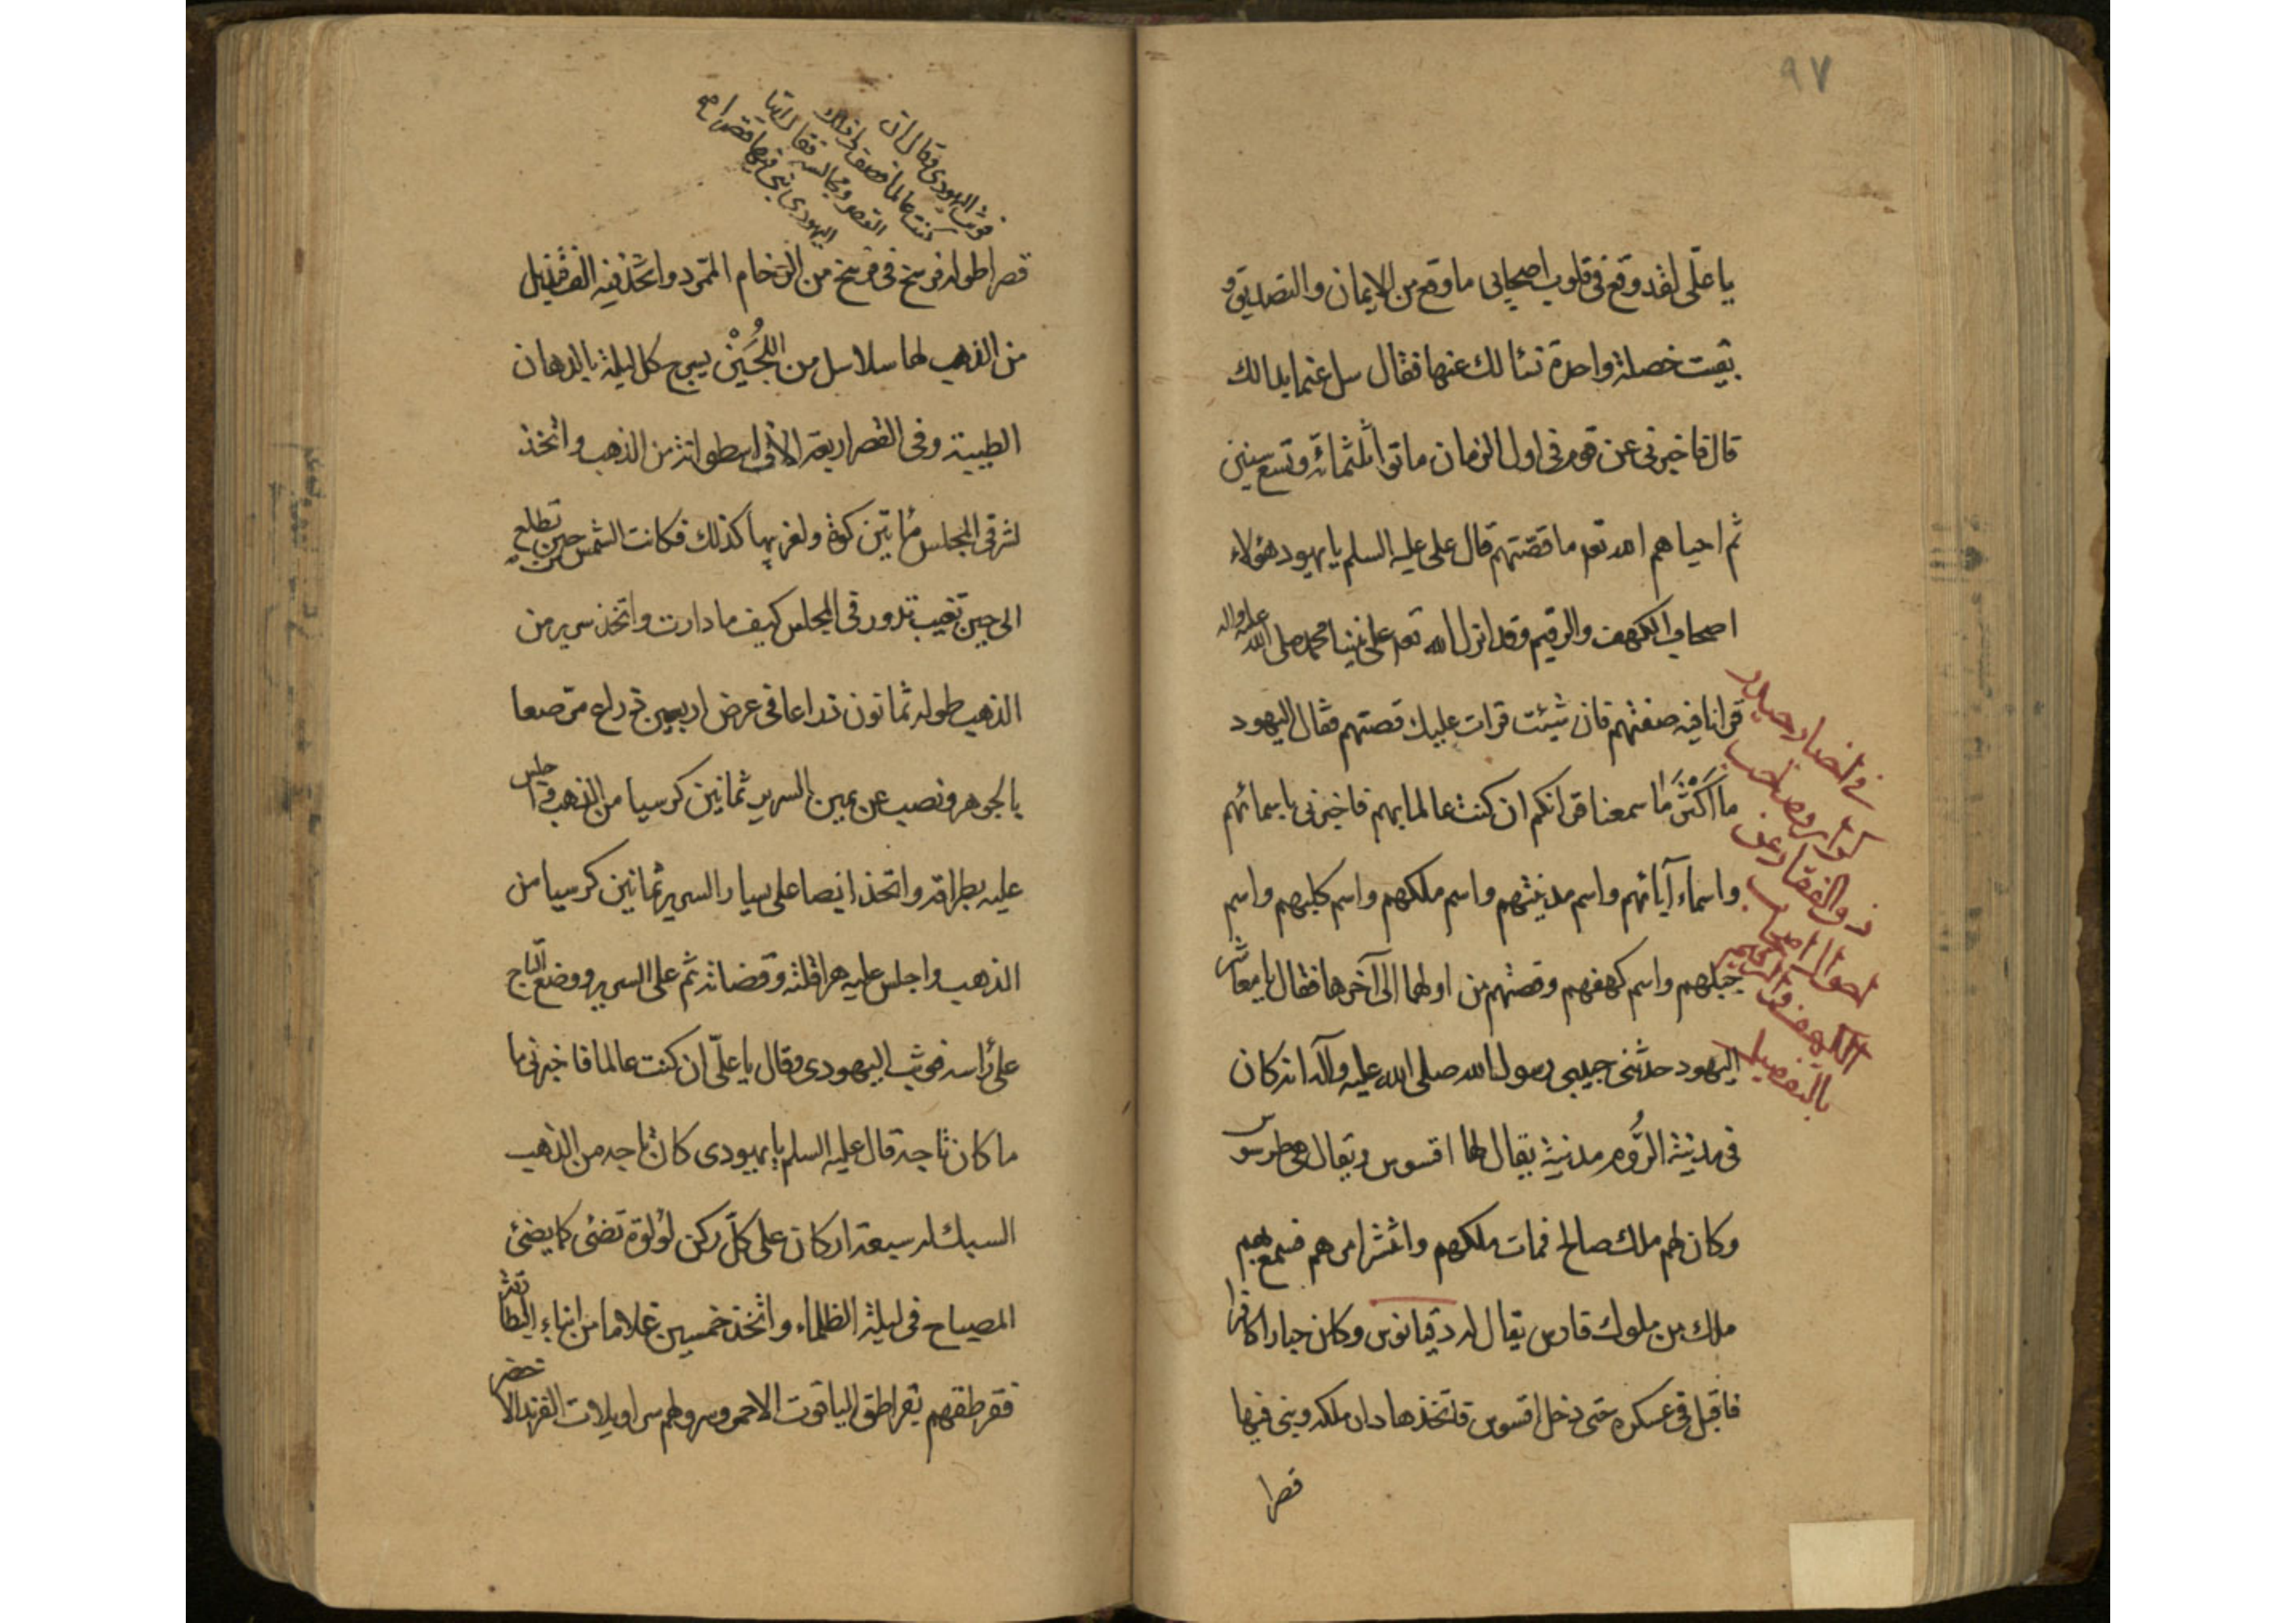 ٩٧
يا علّى لقد وقع فى قلوب اصحابى ما وقع من الايمان والتصديق و
بقيت خصلة واحدة نسالك عنها فقال سل عنما بدا لك
قال فاخبرنى عن قوم فى اول الزمان ماتوا ثلثمائة وتسع سنين
ثم احياهم الله تعه ما قصّتهم قال على عليه السلم يا يهود هؤلاء
اصحاب الكهف والرقيم وقد انزل الله تعه على نبينا محمد صلى الله عليه واله
قرانا فيه صفتهم فان شيئت قرات عليك قصتهم فقال اليهود
ما اكثر ما سمعنا قرانكم ان كنت عالما بهم فاخبرنى باسمائهم
واسماء آبائهم واسم مدينتهم واسم ملكهم واسم كلبهم واسم
جبلهم واسم كهفهم وقصتهم من اولها الى آخرها فقال يا معاشر
اليهود حدثنى حبيبى رسول الله صلى الله عليه وآله انه كان
فى مدينة الرُّوم مدينة يقال لها اقسوس ويقال هى طرسوس
وكان لهم ملك صالح فمات ملكهم وانتشر امرهم فسمع بهم
ملك من ملوك فارس يقال له دقيانوس وكان جبارا كافرا
فاقبل فى عسكره حتى دخل اقسوس فاتخذها دار ملكه وبنى فيها
قصرا
كرار وصاحب
ذو الفقار عن
احوال اصحاب
الكهف والرقيم
بالتفصيل
فوثب اليهودى وقال ان
كنت عالما فصف لى ذلك
القصر ومجالسه فقال يا اخا
اليهودى بنى فيها قصرا صح
قصرا طوله فرسخ فى فرسخ من الرّخام الممّرد واتّخذ فيه الف قنديل
من الذهب لها سلاسل من اللُّجَيْن يسرج كل ليلة بالدهان
الطيبة وفى القصر اربعة الاف اسطوانة من الذهب واتخذ
لشرقى المجلس مأتين كوة ولغربها كذلك فكانت الشمس حين تطلع
الى حين تغيب تدور فى المجلس كيف ما دارت واتخذ سرير من
الذهب طوله ثمانون ذراعا فى عرض اربعين ذراع مرّصعا
بالجوهر ونصب عن يمين السرير ثمانين كرسيا من الذهب واجلس
عليه بطارقة واتخذ ايضا على يسار السرير ثمانين كرسيا من
الذهب واجلس عليه هراقلته وقضاته ثم على السرير ووضع التاج
على رأسه فوثب اليهودى وقال يا علّى ان كنت عالما فاخبرنى ما
ما كان تاجه قال عليه السلم يا يهودى كان تاجه من الذهب
السبك له سبعة اركان على كلّ ركن لؤلؤة تضئ كما يضئ
المصباح فى ليلة الظلماء واتّخذ خمسين غلاما من ابناء البطارقة
فقرطقهم بقراطق الياقوت الاحمر وسرولهم سراويلات الفرند الاخضر